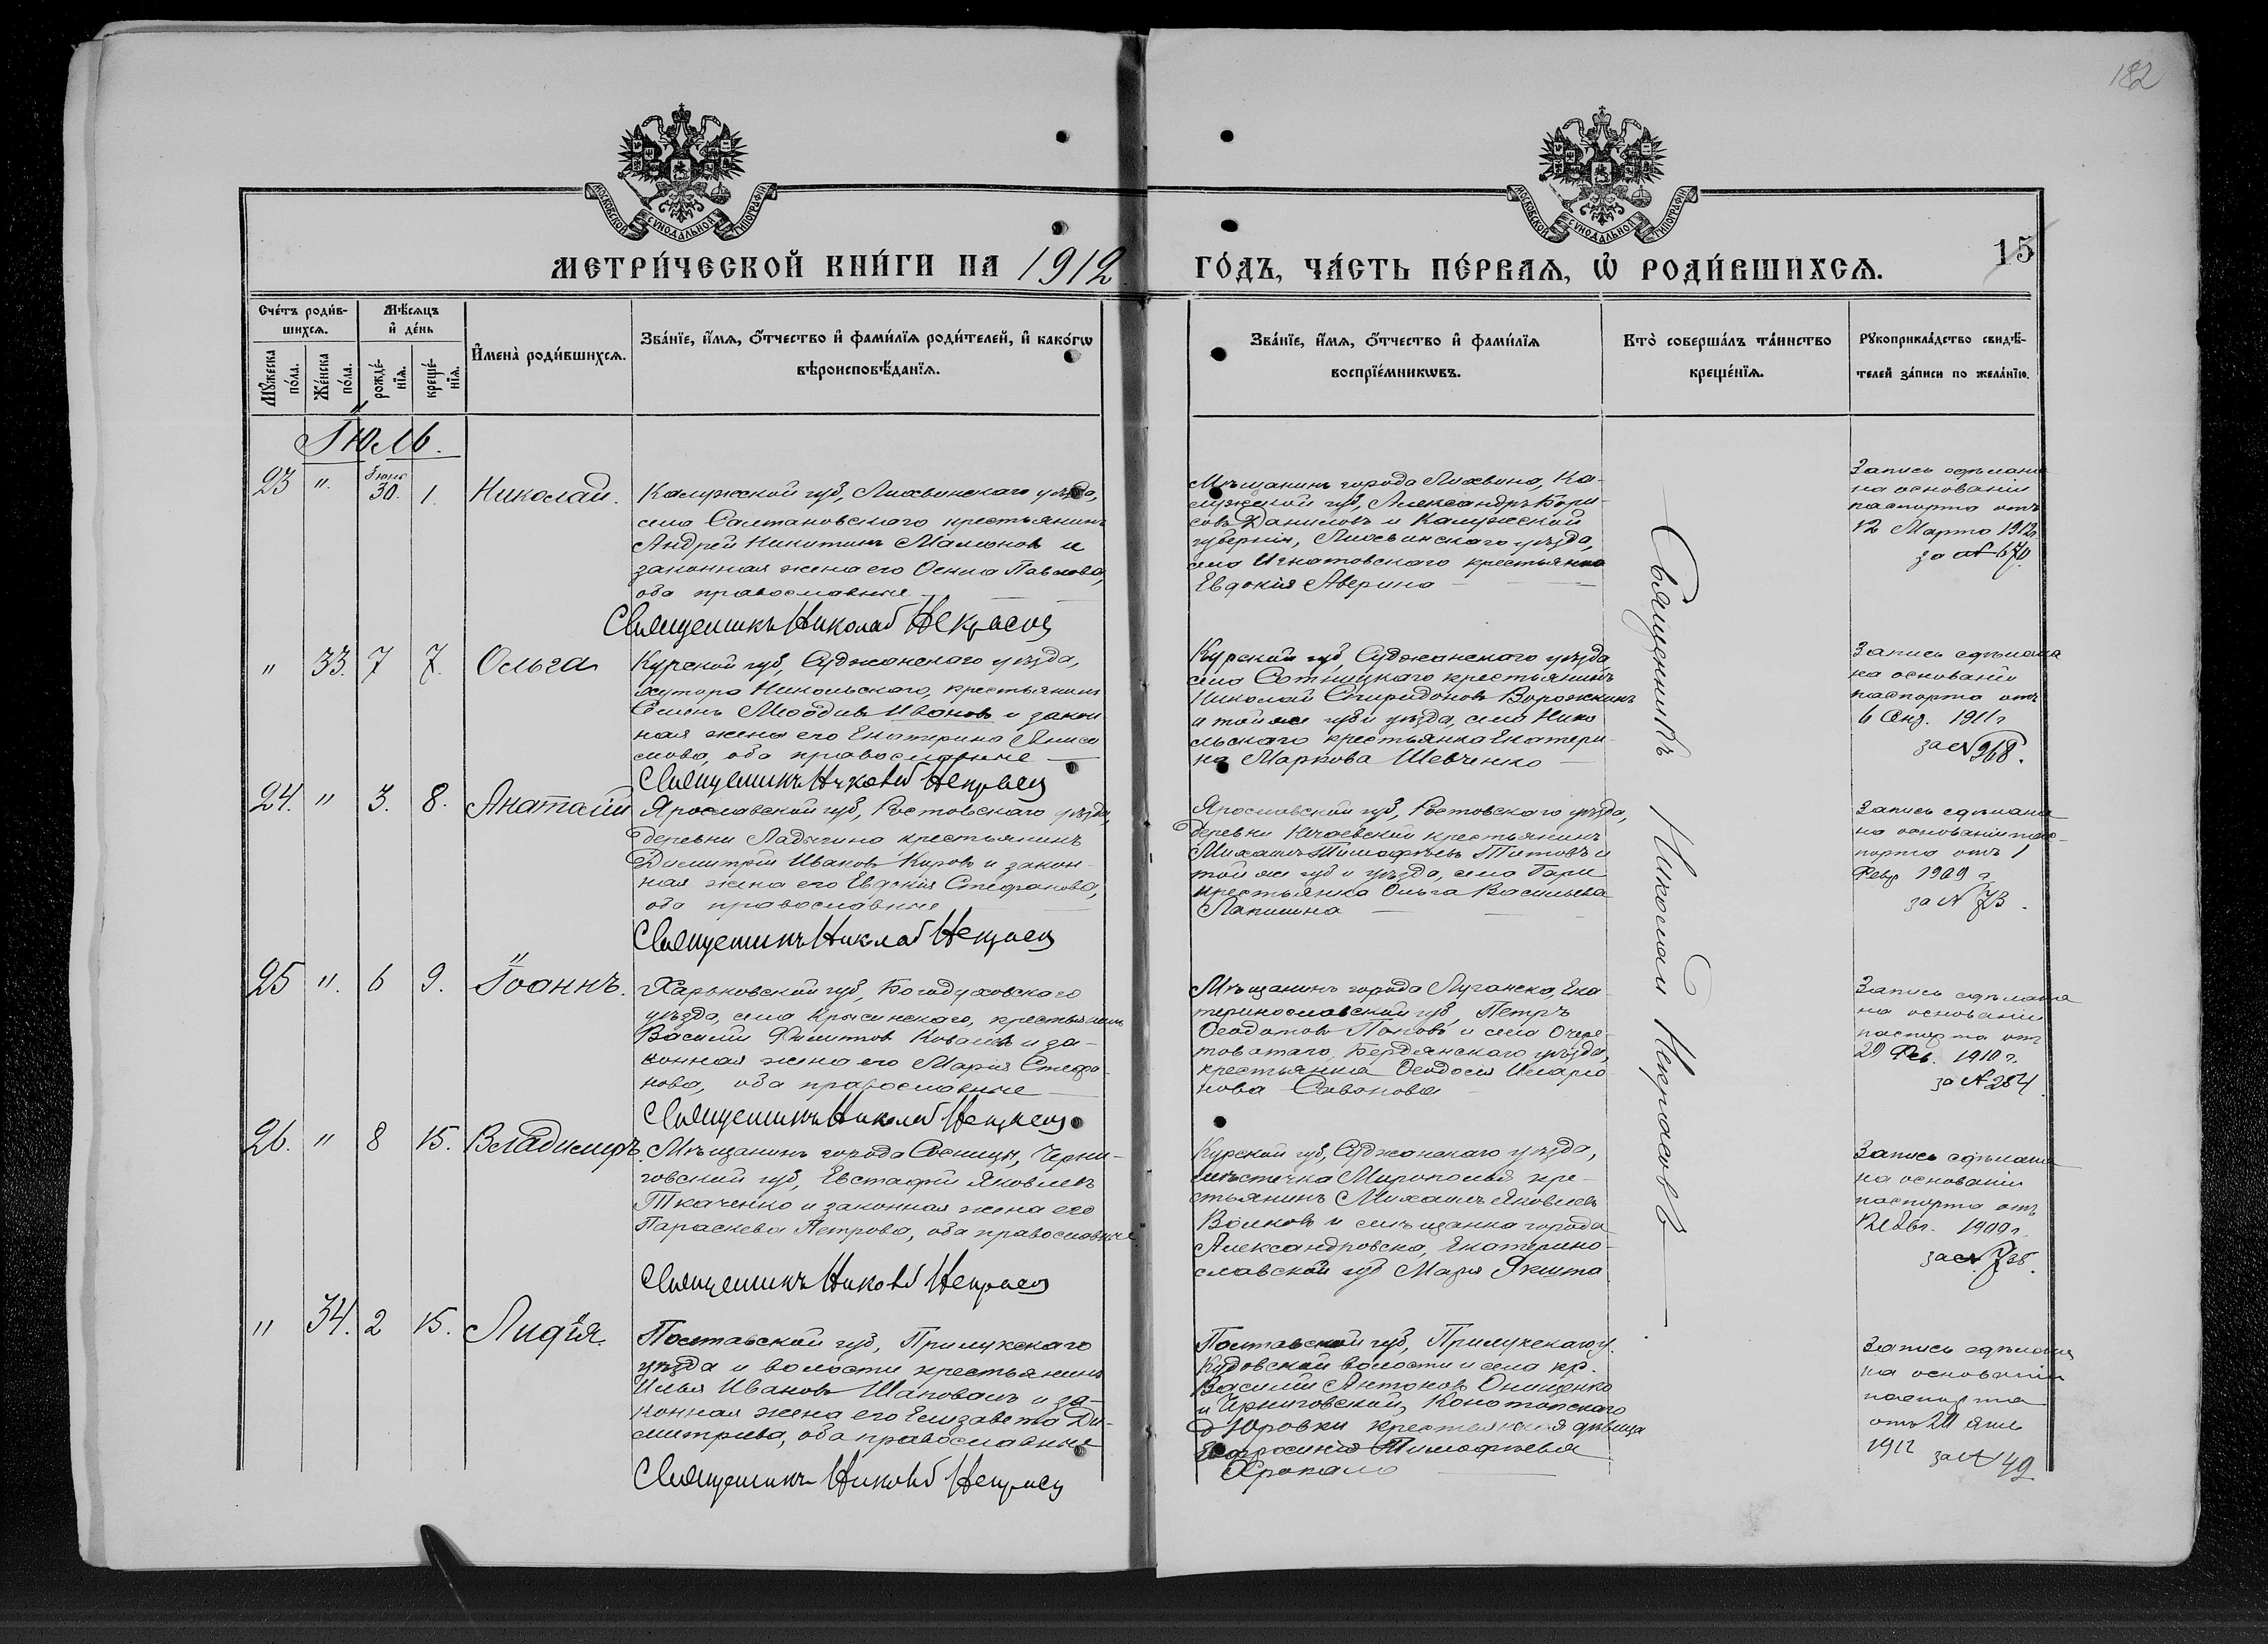 182
МОСКОВСКОЙ СУНОДАЛЬНОЙ ТИПОГРАФІИ
МОСКОВСКОЙ СУНОДАЛЬНОЙ ТИПОГРАФІИ
МЕТРИ́ЧЕСКОЙ КНИ́ГИ НА 1912
ГО́ДЪ, ЧА́СТЬ ПЕ́РВАѦ, Ѡ҆ РОДИ́ВШИХСѦ.
15
Сче́тъ роди́в-
шихсѧ.
Мꙋ́жеска
по́ла.
Же́нска
по́ла.
Мѣ́сѧцъ
и҆ де́нь
рожде́-
нїѧ.
креще́-
нїѧ.
И҆мена̀ роди́вшихсѧ.
Зва́нїе, и҆́мѧ, ѻ҆́тчество и҆ фами́лїѧ роди́телей, и҆ како́гѡ
вѣроисповѣ́данїѧ.
Зва́нїе, и҆́мѧ, ѻ҆́тчество и҆ фами́лїѧ
воспрїе́мникѡвъ.
Кто̀ соверша́лъ та́инство
креще́нїѧ.
Рꙋкоприкла́дство свидѣ́-
телей за́писи по жела́нїю.
Іюль.
23 " Іюня 30. 1. Николай.
Калужской губ, Лихвинскаго уѣзда,
села Салтановскаго крестьянинъ
Андрей Никитинъ Мамонов и
законная жена его Ѳекла Павлова,
оба православные
Священникъ Николай Некрасов
Мѣщанинъ города Лихвина, Ка-
лужской губ, Александръ Бори-
совъ Даниловъ и Калужской
губерніи, Лихвинскаго уѣзда,
села Игнатовскаго крестьянка
Евдокія Аверина
Запись сдѣлана
на основаніи
паспорта отъ
12 Марта 1912г
за № 670.
" 33. 7 7. Ольга
Курской губ, Суджанскаго уѣзда,
хутора Никольскаго, крестьянинъ
Семенъ Меѳодіев Ивановъ и закон
ная жена его Екатерина Аниси
мова, оба православные
Священникъ Николай Некрасов
Курской губ, Суджанскаго уѣзда
села Сотницкаго крестьянинъ
Николай Спиридоновъ Ворожкинъ
и той же губ и уѣзда, села Нико
льскаго крестьянка Екатери-
на Маркова Шевченко
Запись сдѣлана
на основаніи
паспорта отъ
1911 г
за № 968.
24. " 3. 8. Анатолій
Ярославской губ, Ростовскаго уѣзда,
деревни Ладыгина крестьянинъ
Димитрій Иванов Киров и закон-
ная жена его Евдокія Стефанова,
оба православные
Священникъ Николай Некрасов
Ярославской губ, Ростовскаго уѣзда,
деревни крестьянинъ
Михаилъ Тимофѣевъ Титовъ и
той же губ и уѣзда, села Гари
крестьянка Ольга Васильева
Лапшина
Запись сдѣлана
на основаніи пас-
порта отъ 1
Февр 1909 г
за № 73.
25 ". 6 9. Іоаннъ.
Харьковской губ, Богодуховскаго
уѣзда, села Крысинскаго, крестьянинъ
Василій Филиппов Ковалев и за-
конная жена его Марія Стефа-
нова, оба православные
Священникъ Николай Некрасов
Мѣщанинъ города Луганска, Ека-
теринославской губ, Петръ
Ѳеодотовъ Поповъ и села Очере-
товатаго, Бердянскаго уѣзда,
крестьянка Ѳеодосія Иларіо-
нова Савонова
Запись сдѣлана
на основаніи
паспорта отъ
20 Фев. 1910 г.
за № 284.
26. " 8 15. Владимиръ.
Мѣщанинъ города Сосницы, Черни-
говской губ, Евстафій Яковлевъ
Ткаченко и законная жена его
Параскева Петрова, оба православные
Священникъ Николай Некрасов
Курской губ, Суджанскаго уѣзда,
мѣстечка Мирополья кре-
стьянинъ Михаилъ Яковлевъ
Волковъ и мѣщанка города
Александровска, Екатерино-
славской губ Марія Якшта
Запись сдѣлана
на основаніи
паспорта отъ
1909 г.
за №
" 34. 2 15. Лидія.
Полтавской губ, Прилукскаго
уѣзда и волости крестьянинъ
Илья Иванов Шаповалъ и за-
конная жена его Елизавета Ди-
митріева, оба православные
Священникъ Николай Некрасов
Полтавской губ, Прилукскаго у.
волости и села кр.
Василій Антоновъ Онищенко
и Черниговской, Конотопскаго
д Юровки крестьянская дѣвица
Евфросинія Тимофѣева
Хропало
Запись сдѣлана
на основаніи
паспорта
отъ 20 Янв
1912 за № 49
Священникъ Николай Некрасовъ.